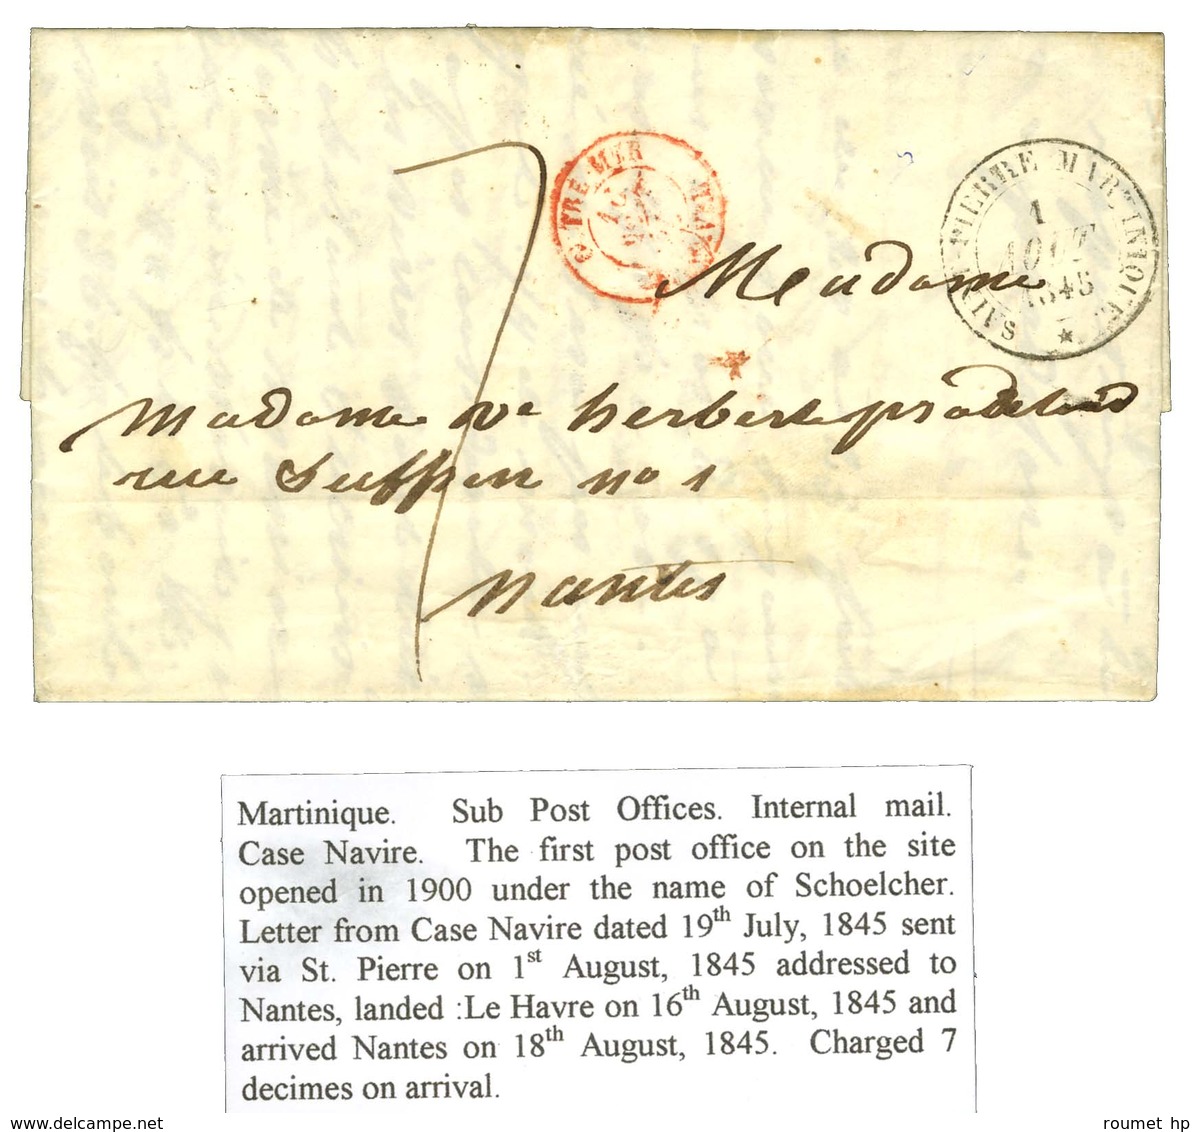 OUTRE-MER
SAINT-PIERRE MARTINIQUE
1
AOUT
1845
7
Madame
Madame Ve herbert
rue Suffren no 1
Nantes
Martinique. Sub Post Offices. Internal mail.
Case Navire. The first post office on the site
opened in 1900 under the name of Schoelcher.
Letter from Case Navire dated 19th July, 1845 sent
via St. Pierre on 1st August, 1845 addressed to
Nantes, landed :Le Havre on 16th August, 1845 and
arrived Nantes on 18th August, 1845. Charged 7
decimes on arrival.
www.delcampe.net
roumet hp